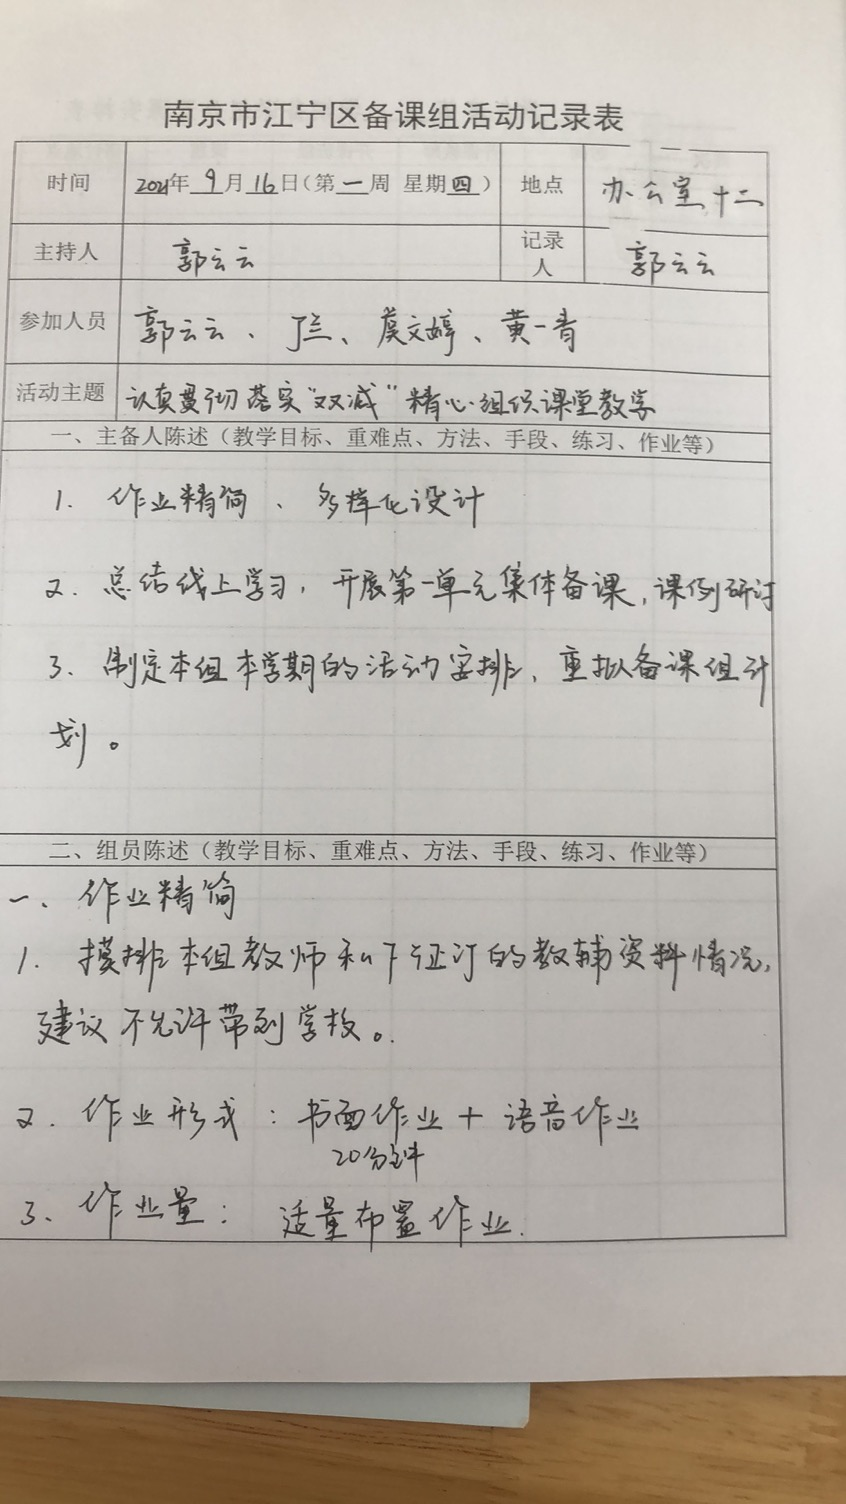 南京市江宁区备课组活动记录表
时间 2021年 9 月 16 日（第 一 周 星期 四） 地点 办公室十二
主持人 郭云云 记录人 郭云云
参加人员 郭云云、丁兰、虞文婷、黄一青
活动主题 认真贯彻落实“双减”精心组织课堂教学
一、主备人陈述（教学目标、重难点、方法、手段、练习、作业等）
1. 作业精简、多样化设计
2. 总结线上学习，开展第一单元集体备课，课例研讨
3. 制定本组本学期的活动安排，重拟备课组计
划。
二、组员陈述（教学目标、重难点、方法、手段、练习、作业等）
一、作业精简
1. 摸排本组教师私下征订的教辅资料情况，
建议不允许带到学校。
2. 作业形式：书面作业 + 语音作业
20分钟
3. 作业量：适量布置作业.